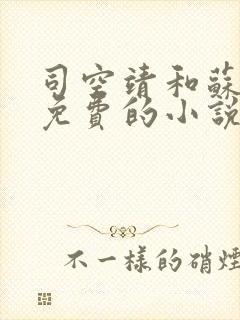 司空靖和蘇
免費的小說
不一樣的硝煙